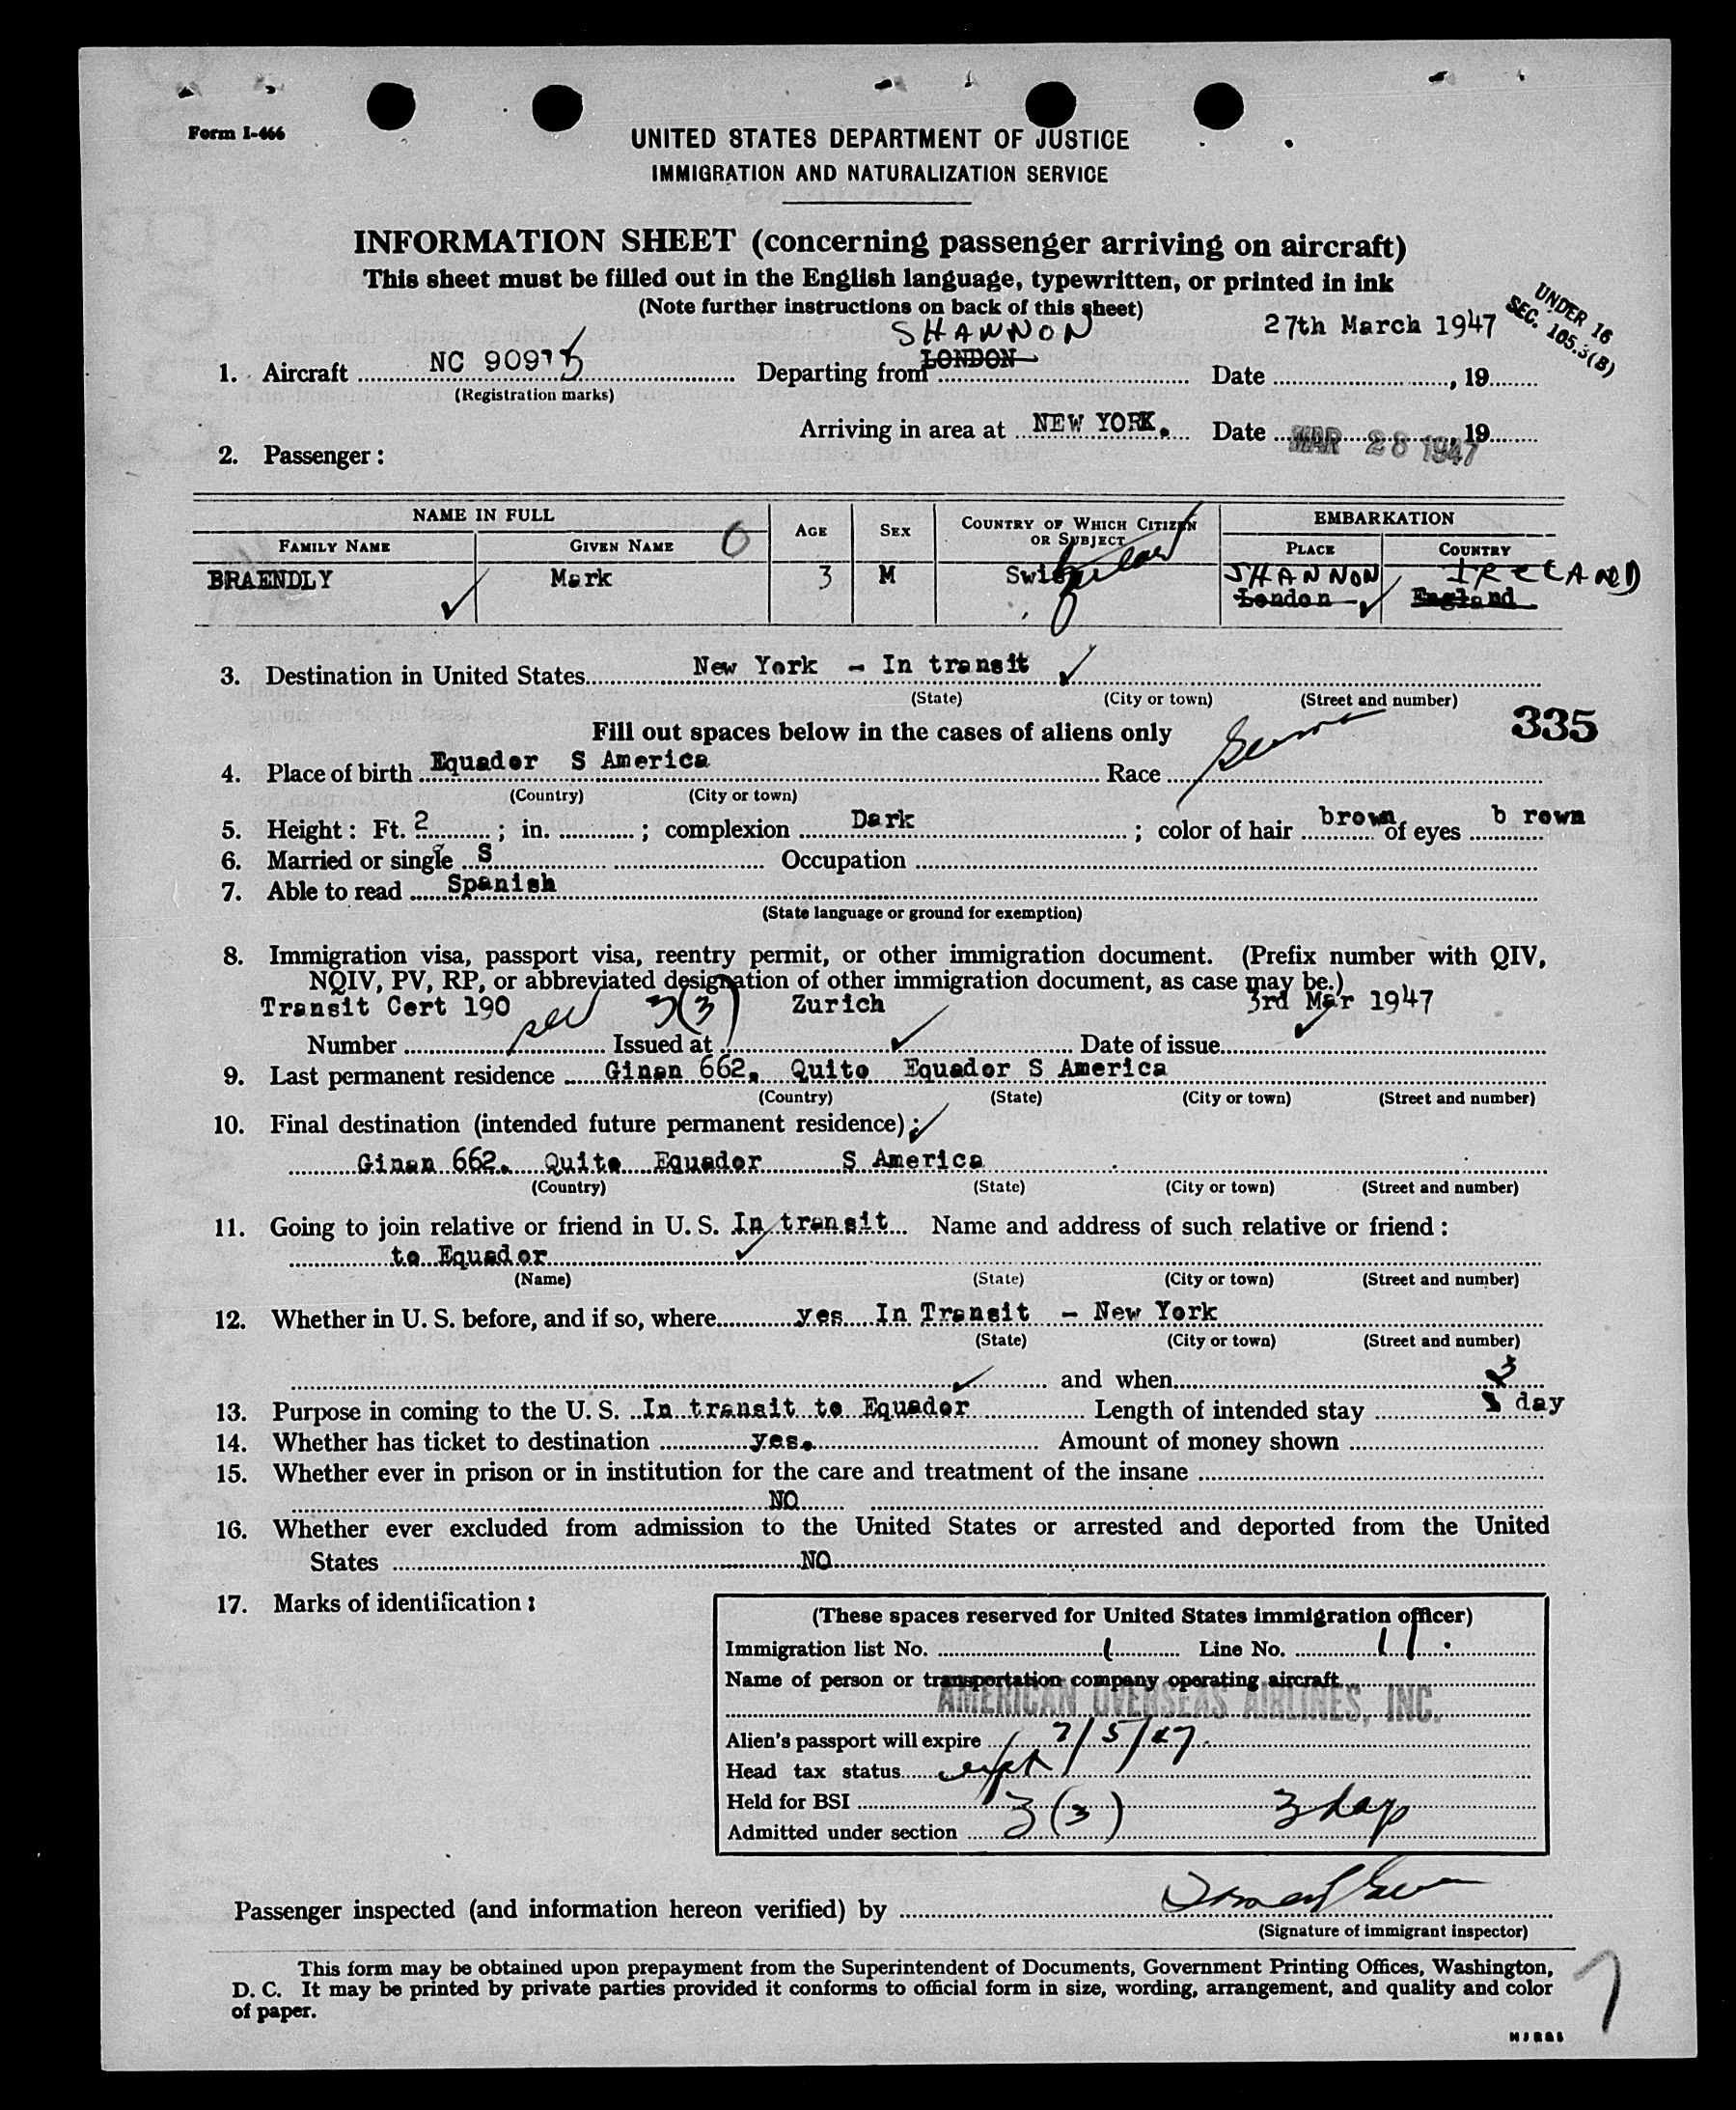 Form I-466
UNITED STATES DEPARTMENT OF JUSTICE
IMMIGRATION AND NATURALIZATION SERVICE
INFORMATION SHEET (concerning passenger arriving on aircraft)
This sheet must be filled out in the English language, typewritten, or printed in ink
(Note further instructions on back of this sheet)
UNDER 16
SEC. 105.3(B)
SHANNON
27th March 1947
1. Aircraft NC 9097 Departing from LONDON Date , 19
(Registration marks)
Arriving in area at NEW YORK. Date MAR 28 1947, 19
2. Passenger :
NAME IN FULL AGE SEX COUNTRY OF WHICH CITIZEN OR SUBJECT EMBARKATION
FAMILY NAME GIVEN NAME PLACE COUNTRY
BRAENDLY Mark 3 M SHANNON IRELAND
London England
3. Destination in United States New York - In transit
(State) (City or town) (Street and number)
335
Fill out spaces below in the cases of aliens only
4. Place of birth Equador S America Race
(Country) (City or town)
5. Height : Ft. 2 ; in. ; complexion Dark ; color of hair brown of eyes b rown
6. Married or single S Occupation
7. Able to read Spanish
(State language or ground for exemption)
8. Immigration visa, passport visa, reentry permit, or other immigration document. (Prefix number with QIV,
NQIV, PV, RP, or abbreviated designation of other immigration document, as case may be.)
Transit Cert 190 3(3) Zurich 3rd Mar 1947
Number Issued at Date of issue
9. Last permanent residence Ginan 662. Quito Equador S America
(Country) (State) (City or town) (Street and number)
10. Final destination (intended future permanent residence) :
Ginan 662. Quito Equador S America
(Country) (State) (City or town) (Street and number)
11. Going to join relative or friend in U. S. In transit Name and address of such relative or friend :
to Equador
(Name) (State) (City or town) (Street and number)
12. Whether in U. S. before, and if so, where yes In Transit - New York
(State) (City or town) (Street and number)
and when
13. Purpose in coming to the U. S. In transit to Equador Length of intended stay 3 day
14. Whether has ticket to destination yes. Amount of money shown
15. Whether ever in prison or in institution for the care and treatment of the insane
NO
16. Whether ever excluded from admission to the United States or arrested and deported from the United
States NO
17. Marks of identification :
(These spaces reserved for United States immigration officer)
Immigration list No. 1 Line No. 11
Name of person or transportation company operating aircraft
AMERICAN OVERSEAS AIRLINES, INC.
Alien's passport will expire 7/5/47
Head tax status
Held for BSI
Admitted under section 3(3) 3 days
Passenger inspected (and information hereon verified) by
(Signature of immigrant inspector)
This form may be obtained upon prepayment from the Superintendent of Documents, Government Printing Offices, Washington,
D. C. It may be printed by private parties provided it conforms to official form in size, wording, arrangement, and quality and color
of paper.